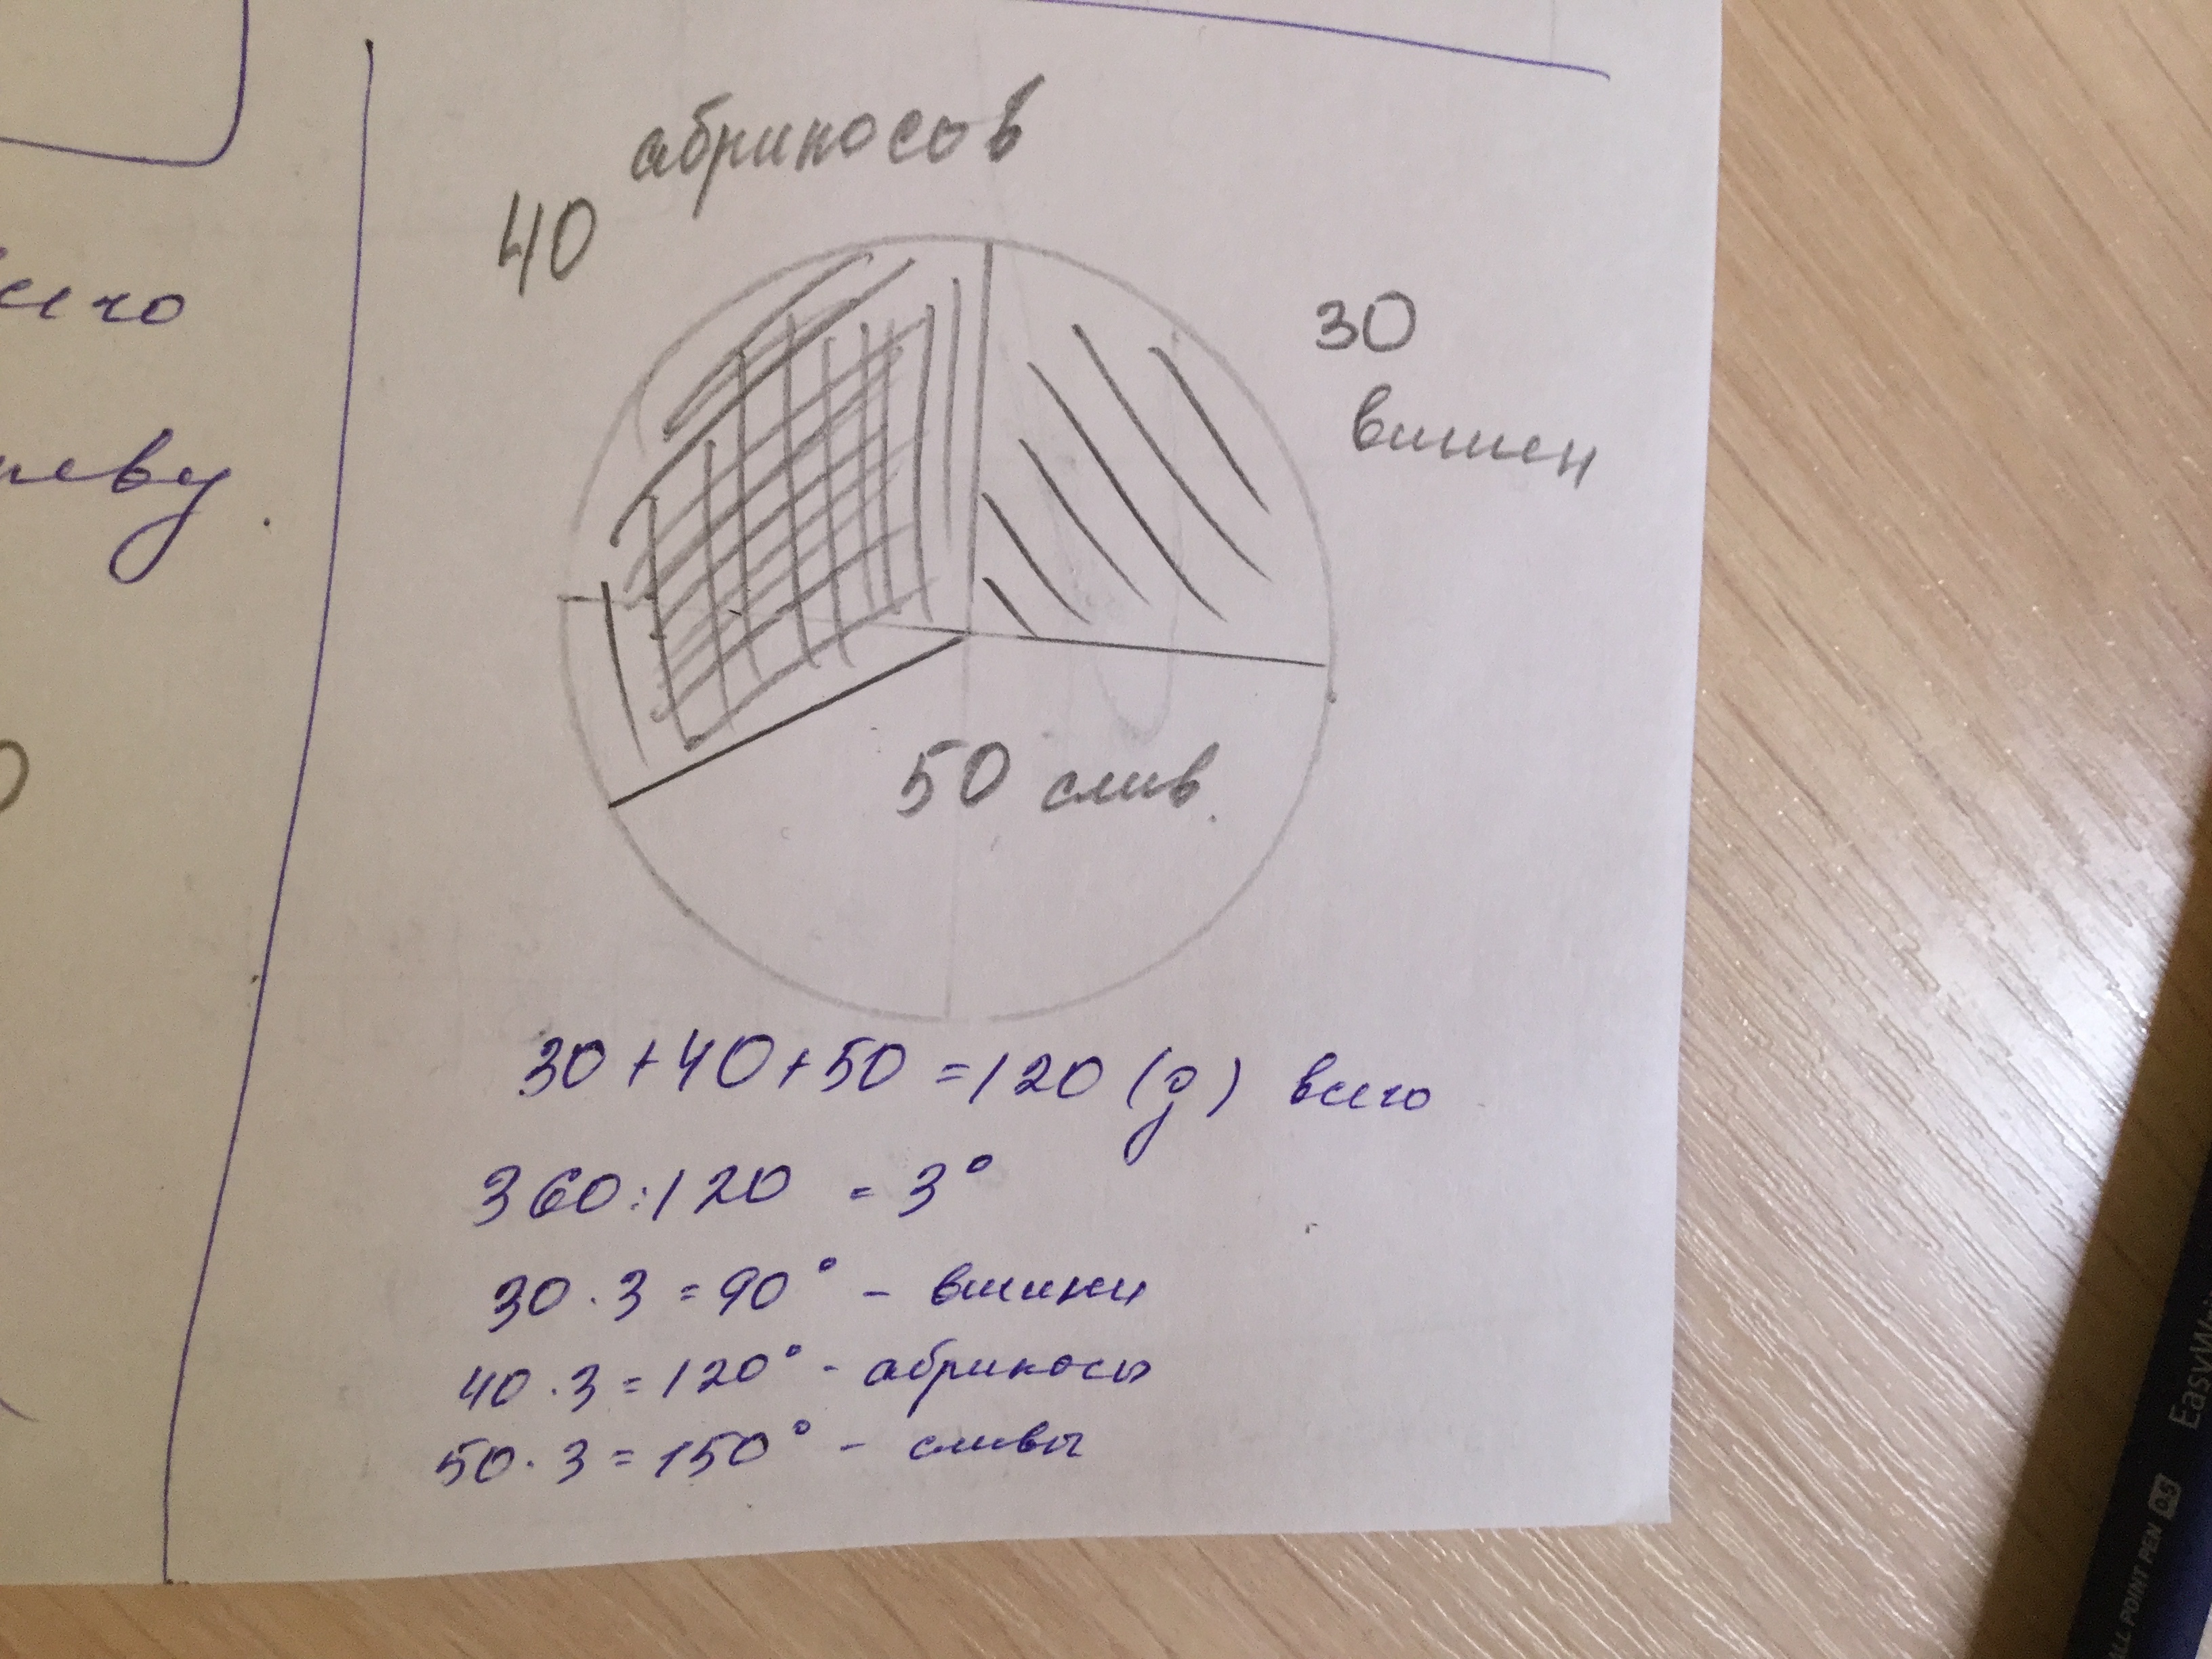 40 абрикосов
30
вишен
50 слив.
30+40+50=120 (д) всего
360:120 = 3°
30·3=90° - вишни
40·3=120° - абрикосы
50·3=150° - сливы
POINT PEN 0.5